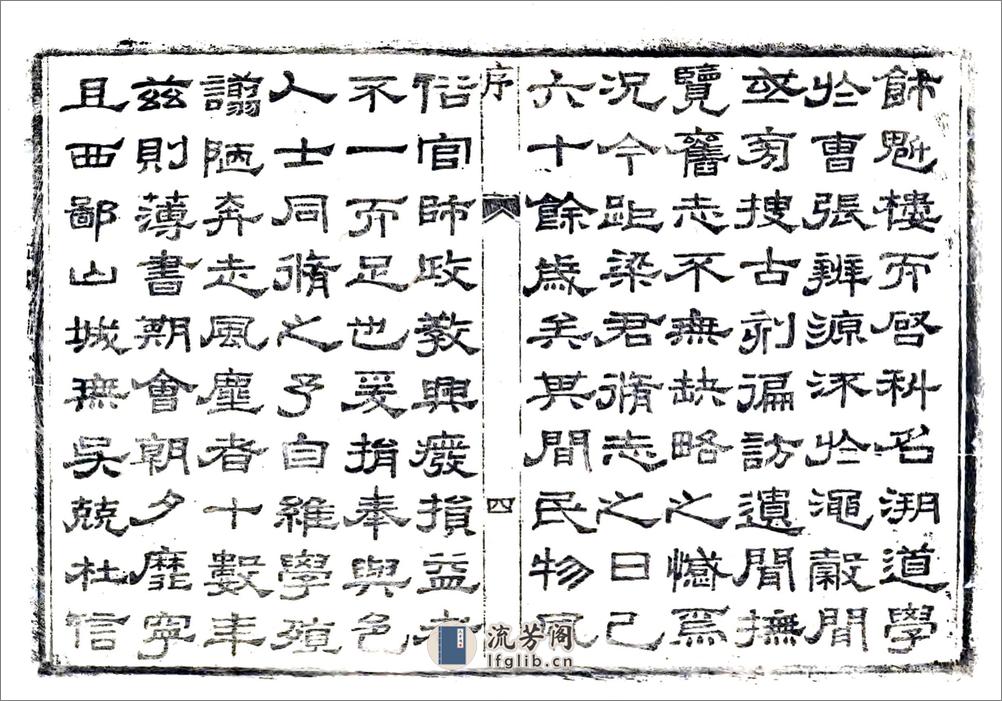 飾魁樓而啓科名溯道學
於曹張辨源流於澠穀間
亟旁搜古刹徧訪遺聞撫
覽舊志不無缺略之憾焉
況今距梁君脩志之日已
六十餘歲矣其間民物風
序 四
俗官師政教興廢損益者
不一而足也爰捐奉與邑
人士同脩之予自維學殖
譾陋奔走風塵者十數年
茲則薄書期會朝夕靡寧
且西鄙山城無吳兢杜信
流芳阁
lfglib.cn